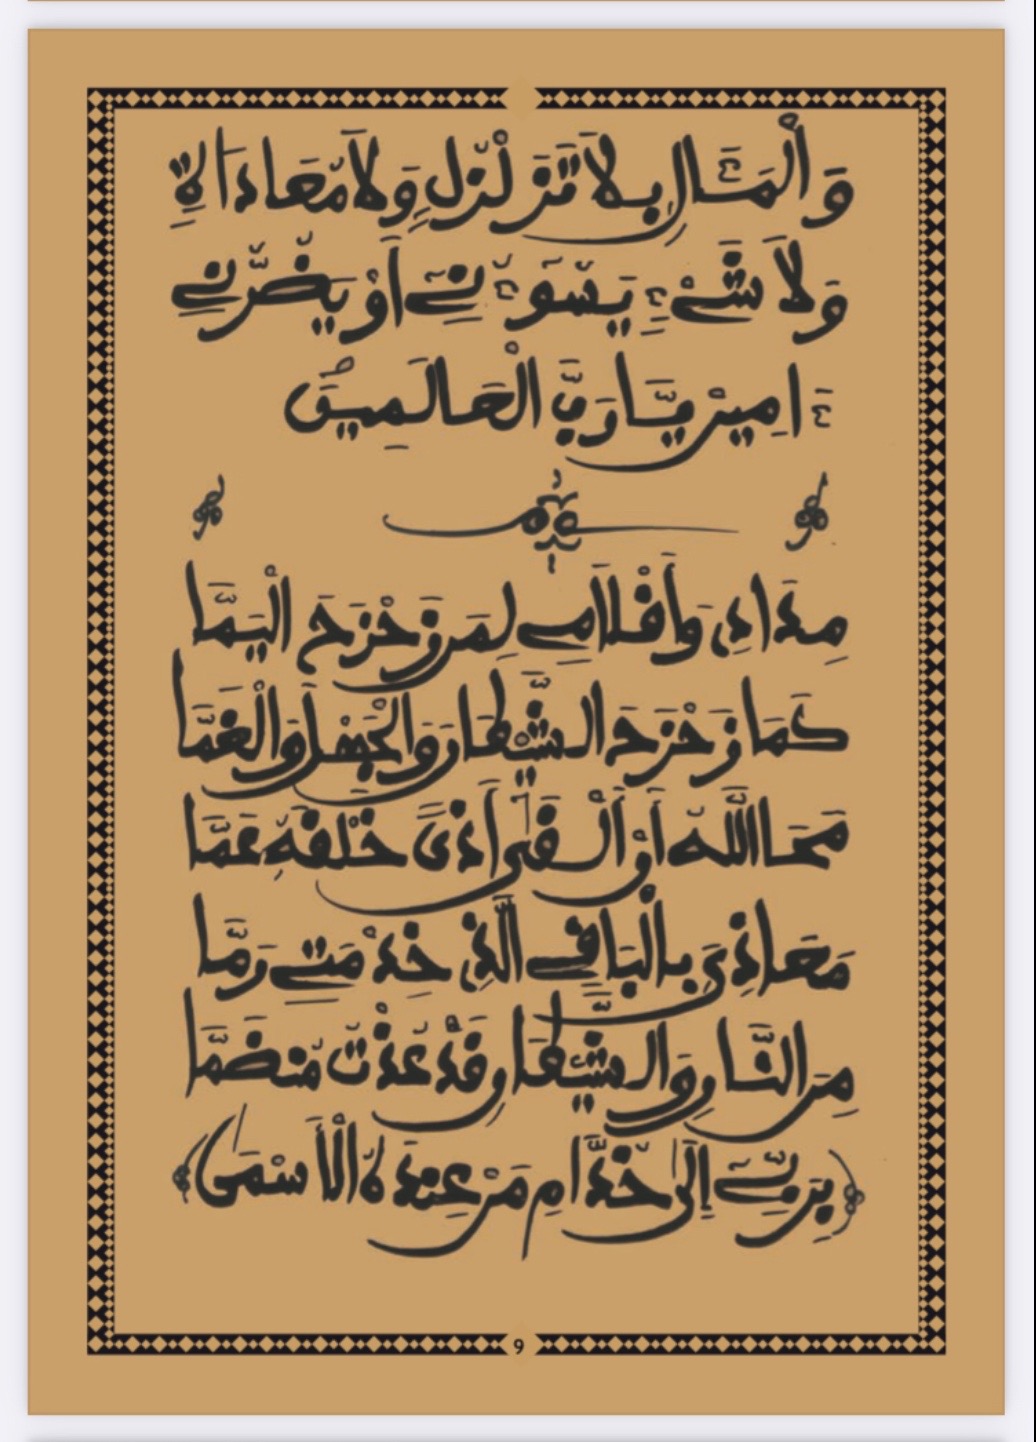 وَالْمَئَالِ بِلَا تَزَلْزُلٍ وَلَا مُعَادَاةٍ
وَلَا شَيْءٍ يَسُوءُنِي أَوْ يَضُرُّنِي
ءَامِينْ يَا رَبَّ الْعَالَمِينَ
مِدَادِي وَأَقْلَامِي لِمَنْ زَحْزَحَ الْيَمَّا
كَمَا زَحْزَحَ الشَّيْطَانَ وَالْجَهْلَ وَالْغَمَّا
مَحَا اللَّهُ أَنْ أَلْقَى أَذَى خَلْقِهِ عَمَّا
مَعَاذِي بِالْبَاقِي الَّذِي خِدْمَتِي رَمَّا
مِنَ النَّارِ وَالشَّيْطَانِ قَدْ عُذْتُ مُنْضَمَّا
بِرَبِّي إِلَى خُدَّامِ مَنْ عِنْدَهُ الْأَسْمَى
9